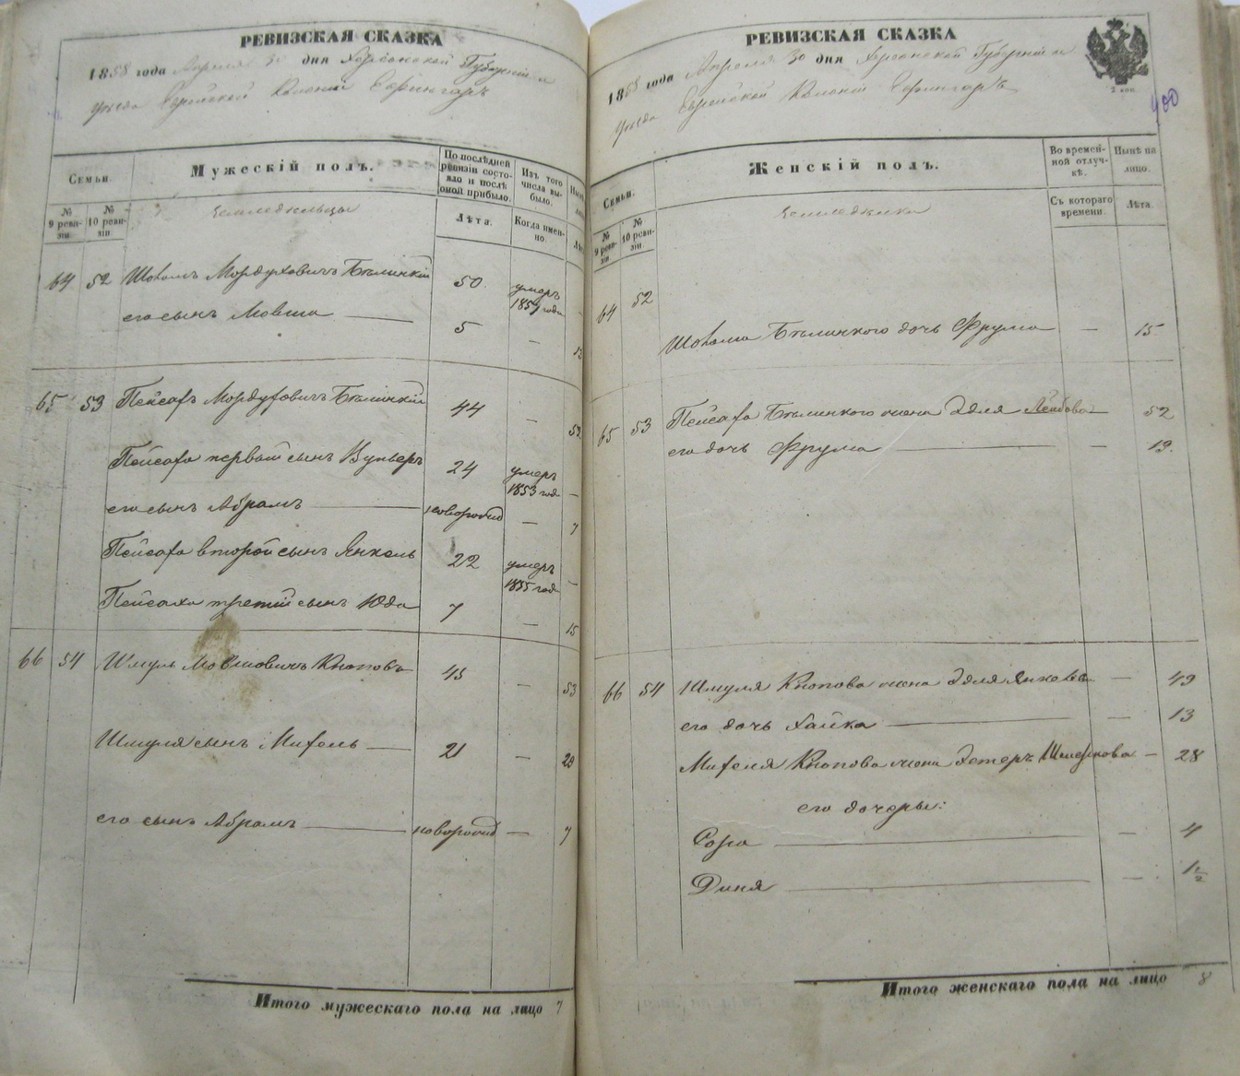 РЕВИЗСКАЯ СКАЗКА
1858 года Апреля 30 дня Херсонской Губернии и
уезда Еврейской Колонии Ефингаръ
Семьи.
№ 9 реви-зіи
№ 10 реви-зіи
Мужескій полъ.
По послѣдней ревизіи состо-яло и послѣ оной прибыло.
Изъ того числа вы-было.
Лѣта.
Когда имен-но.
Земледельцы
64 52 Шолом Мордуховичъ Бѣлинкій 50 умеръ 1857 года
его сынъ Мовша 5 —
65 53 Пейсахъ Мордуховичъ Бѣлинкій 44 —
Пейсаха первый сынъ Вульфъ 24 умеръ 1853 год —
его сынъ Абрамъ новорожд — 7
Пейсаха второй сынъ Янкель 22 умеръ 1855 год —
Пейсаха третій сынъ Юда 7 — 15
66 54 Шмуль Мовшовичъ Кноповъ 45 — 53
Шмуля сынъ Михель 21 — 29
его сынъ Абрамъ новорожд — 7
Итого мужескаго пола на лицо 7
РЕВИЗСКАЯ СКАЗКА
2 коп.
400
1858 года Апреля 30 дня Херсонской Губернии и
уезда Еврейской Колонии Ефингаръ
Семьи.
№ 9 реви-зіи
№ 10 реви-зіи
Женскій полъ.
Во времен-ной отлуч-кѣ.
Нынѣ на лицо.
Съ котораго времени.
Лѣта.
64 52
Шолома Бѣлинкого дочь Фрума — 15
65 53 Пейсаха Бѣлинкого жена Эдля Лейбова — 52
его дочь Фрума — 19
66 54 Шмуля Кнопова жена Эдля Янкова — 49
его дочь Хайка — 13
Михеля Кнопова жена Эстеръ — 28
его дочери:
— 4
Диня — 1½
Итого женскаго пола на лицо 8